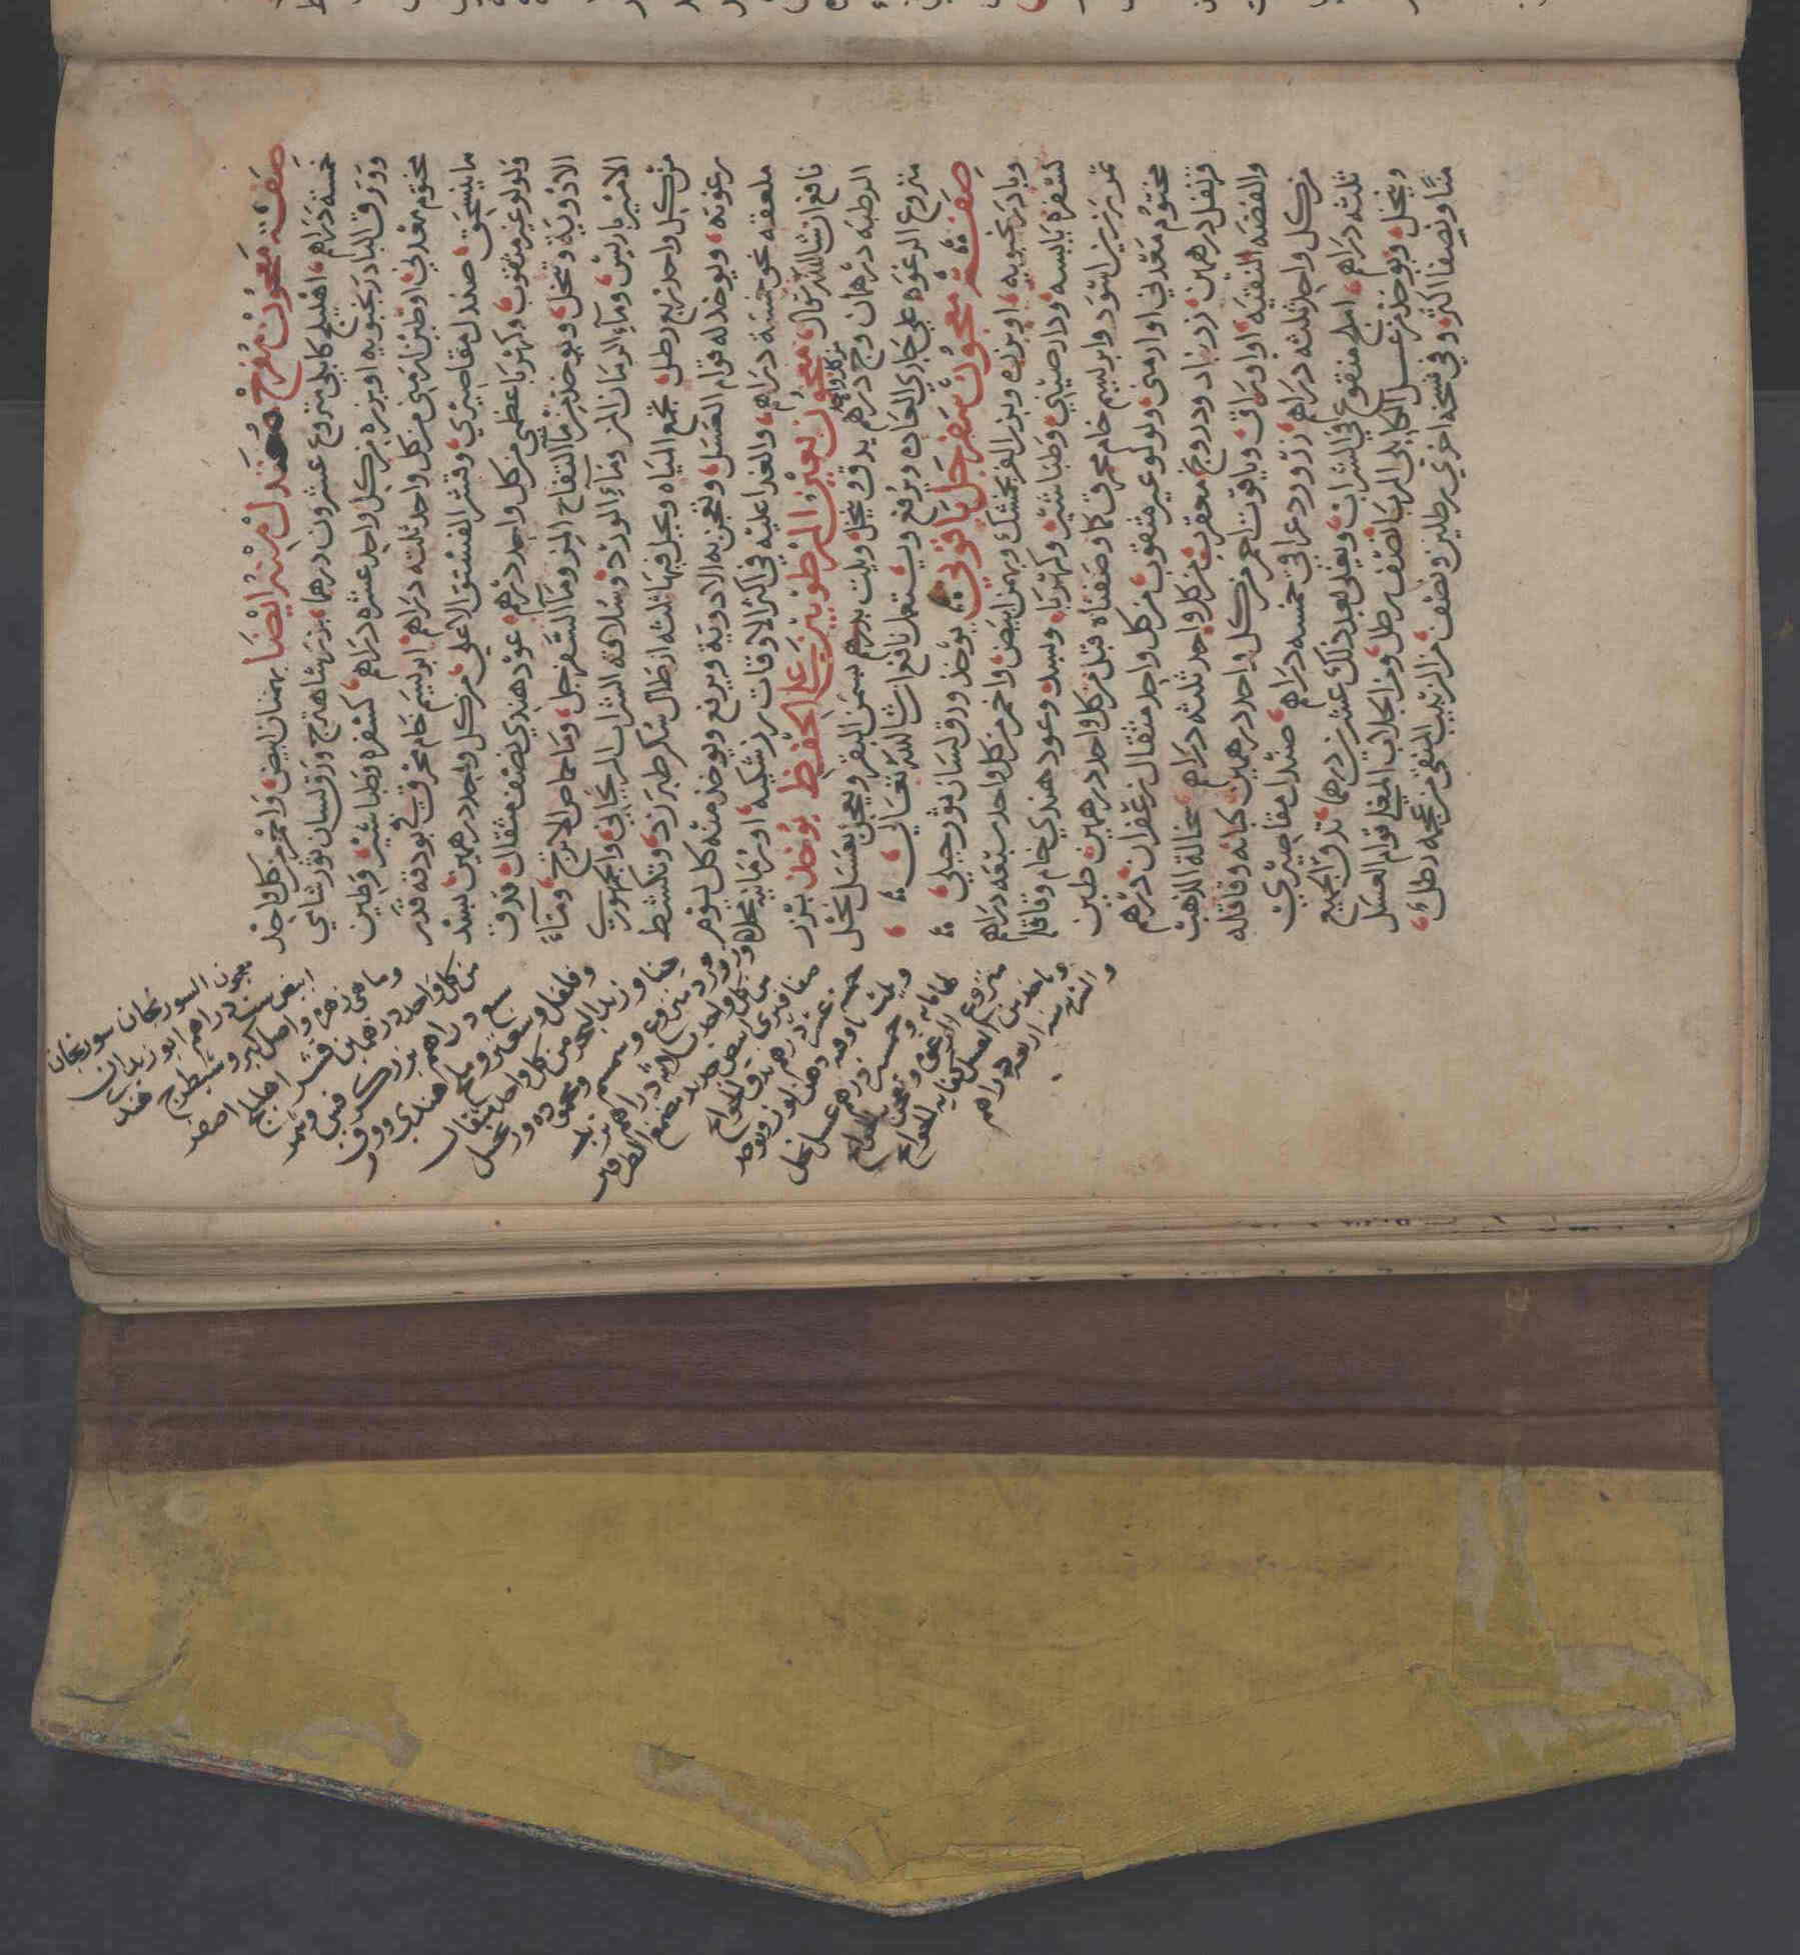 صفة معجون مفرح معتدل مثله ايضا بهمنان ابيض واحمر من كل واحد
خمسة دراهم اهليلج كابلي منزوع عشرون درهما بزر شاهترج وورق لسان ثور شامي
وورق البادرنجبويه او بزره من كل واحد عشره دراهم كسفره وطباشير وطين
مختوم معدني او طين ارمني من كل واحد ثلثه دراهم ابريسم خام محرق في بودقه قدر
ما ينسحق صندل مقاصيري وقشر الفستق الاعلى من كل واحد درهمين بسد
ولولو غير مثقوب وكهربا عظمي من كل واحد درهم عود هندي نصف مثقال تدق
الادوية وتنخل ويوخذ من ما التفاح المز وما السفرجل وما حماض الاترج وماء
الامير باريس وماء الرمان المز وماء الورد وسلافه الشراب الريحاني والجمهوري
من كل واحد ربع رطل تجمع المياه ويحل فيها ثلثه ارطال سكر طبرزد وتكشط
رغوته ويوخذ له قوام العسل وتعجن به الادوية ويرفع ويوخذ منه كل يوم
ملعقه نحو خمسة دراهم والغدا عليه في اكثر الاوقات زرشكيه او رمانيه محلاه
نافع ان شا الله تعالى معجون يعين المرطوبين على الحفظ يوخذ بزر
الرطبه درهمان وج درهم يدق وينخل ويلت بدرهم سمن البقر ويعجن بعسل نحل
منزوع الرغوه على جاري العاده ويرفع ويستعمل نافع ان شا الله تعالى
صفة معجون سفرجل ياقوتي يوخذ ورق لسان ثور جبلي
وبادرنجبويه او بزره وبزر الفرنجمشك وبهمن ابيض واحمر من كل واحد سبعه دراهم
كسفره يابسه ودار صيني وطباشير وكهربا وبسد وعود هندي خام وقاقله
ثمر نرزين اسود وابريسم خام محرق كما وصفناه قبل من كل واحد درهمين طين
مختوم معدني او ارمني ولولو غير مثقوب من كل واحد مثقال زعفران درهم
قرنفل درهمين زرنباد ودرونج معقرب من كل واحد ثلثه دراهم سحالة الذهب
والفضه النقيه او اوراق وياقوت احمر من كل واحد درهمين كبابه وقاقله
من كل واحد ثلثه دراهم زرورد عراقي خمسه دراهم صندل مقاصيري
ثلثه دراهم املج منقوع في الشراب ويقلى بعد ذلك عشرين درهما تدق الجميع
وينخل ويوخذ من عسل الكابلي المربا نصف رطل ومن الجلاب المغلي قوام العسل
منا ونصفا اكثر وفي نسخه اخرى رطلين ونصف من الزبيب المنقى من عجمه رطل
معجون السورنجان سورنجان
ابيض ست دراهم ابو زيدان
وما هي زهره واصل كبر وشيطرج هندي
من كل واحد درهمين قشر اهليلج اصفر
سبع دراهم بزر كرفس
وفلفل وصعتر وملح هندي وورق
حنا وزبد البحر من كل واحد مثقال
ورد منزوع وسمسم
من كل واحد ثلاثه دراهم تربد
ابيض
خمسه عشر درهم يدق الجميع
ويلت باوقيه دهن لوز ويوخذ
كمايه وخمسه درهم عسل نحل
منزوع الرغوه وتعجن به الجميع